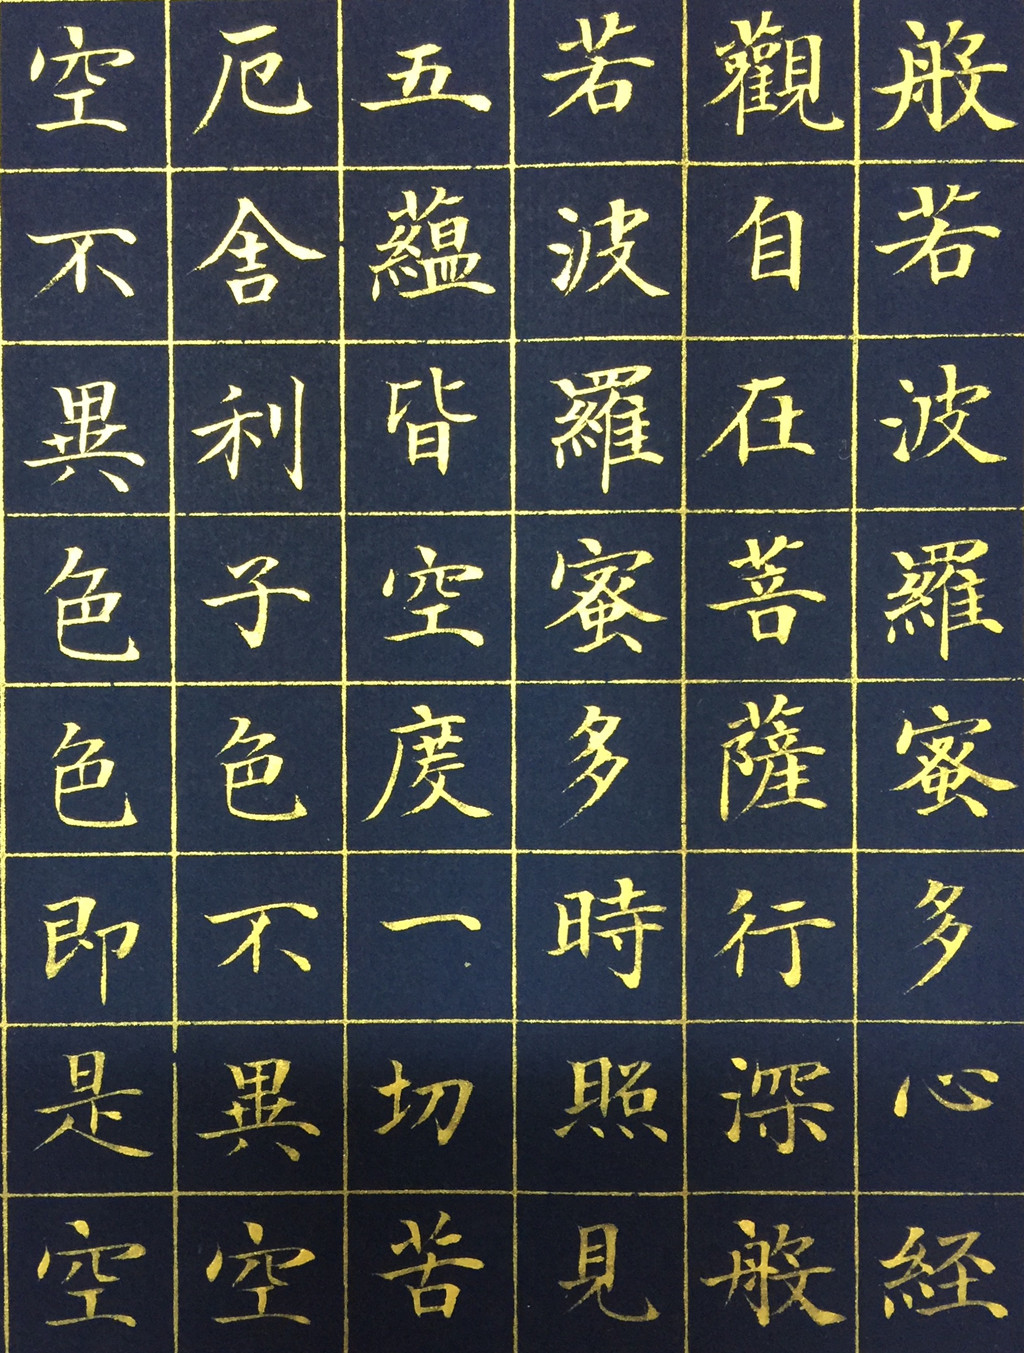 般若波羅蜜多心経
觀自在菩薩行深般
若波羅蜜多時照見
五蘊皆空度一切苦
厄舎利子色不異空
空不異色色即是空